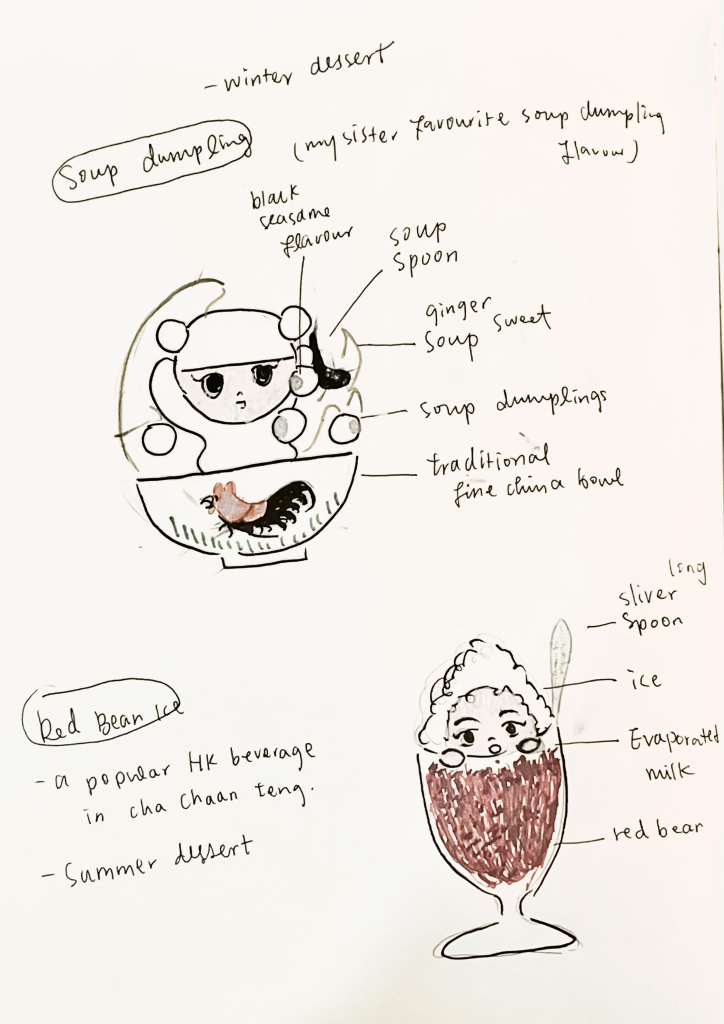 - winter dessert
Soup dumpling
(my sister favourite soup dumpling
flavour)
black
seasame
flavour
soup
spoon
ginger
soup sweet
soup dumplings
traditional
fine china bowl
long
sliver
spoon
ice
Evaporated
milk
red bean
Red Bean Ice
- a popular HK beverage
in cha chaan teng.
- Summer dessert